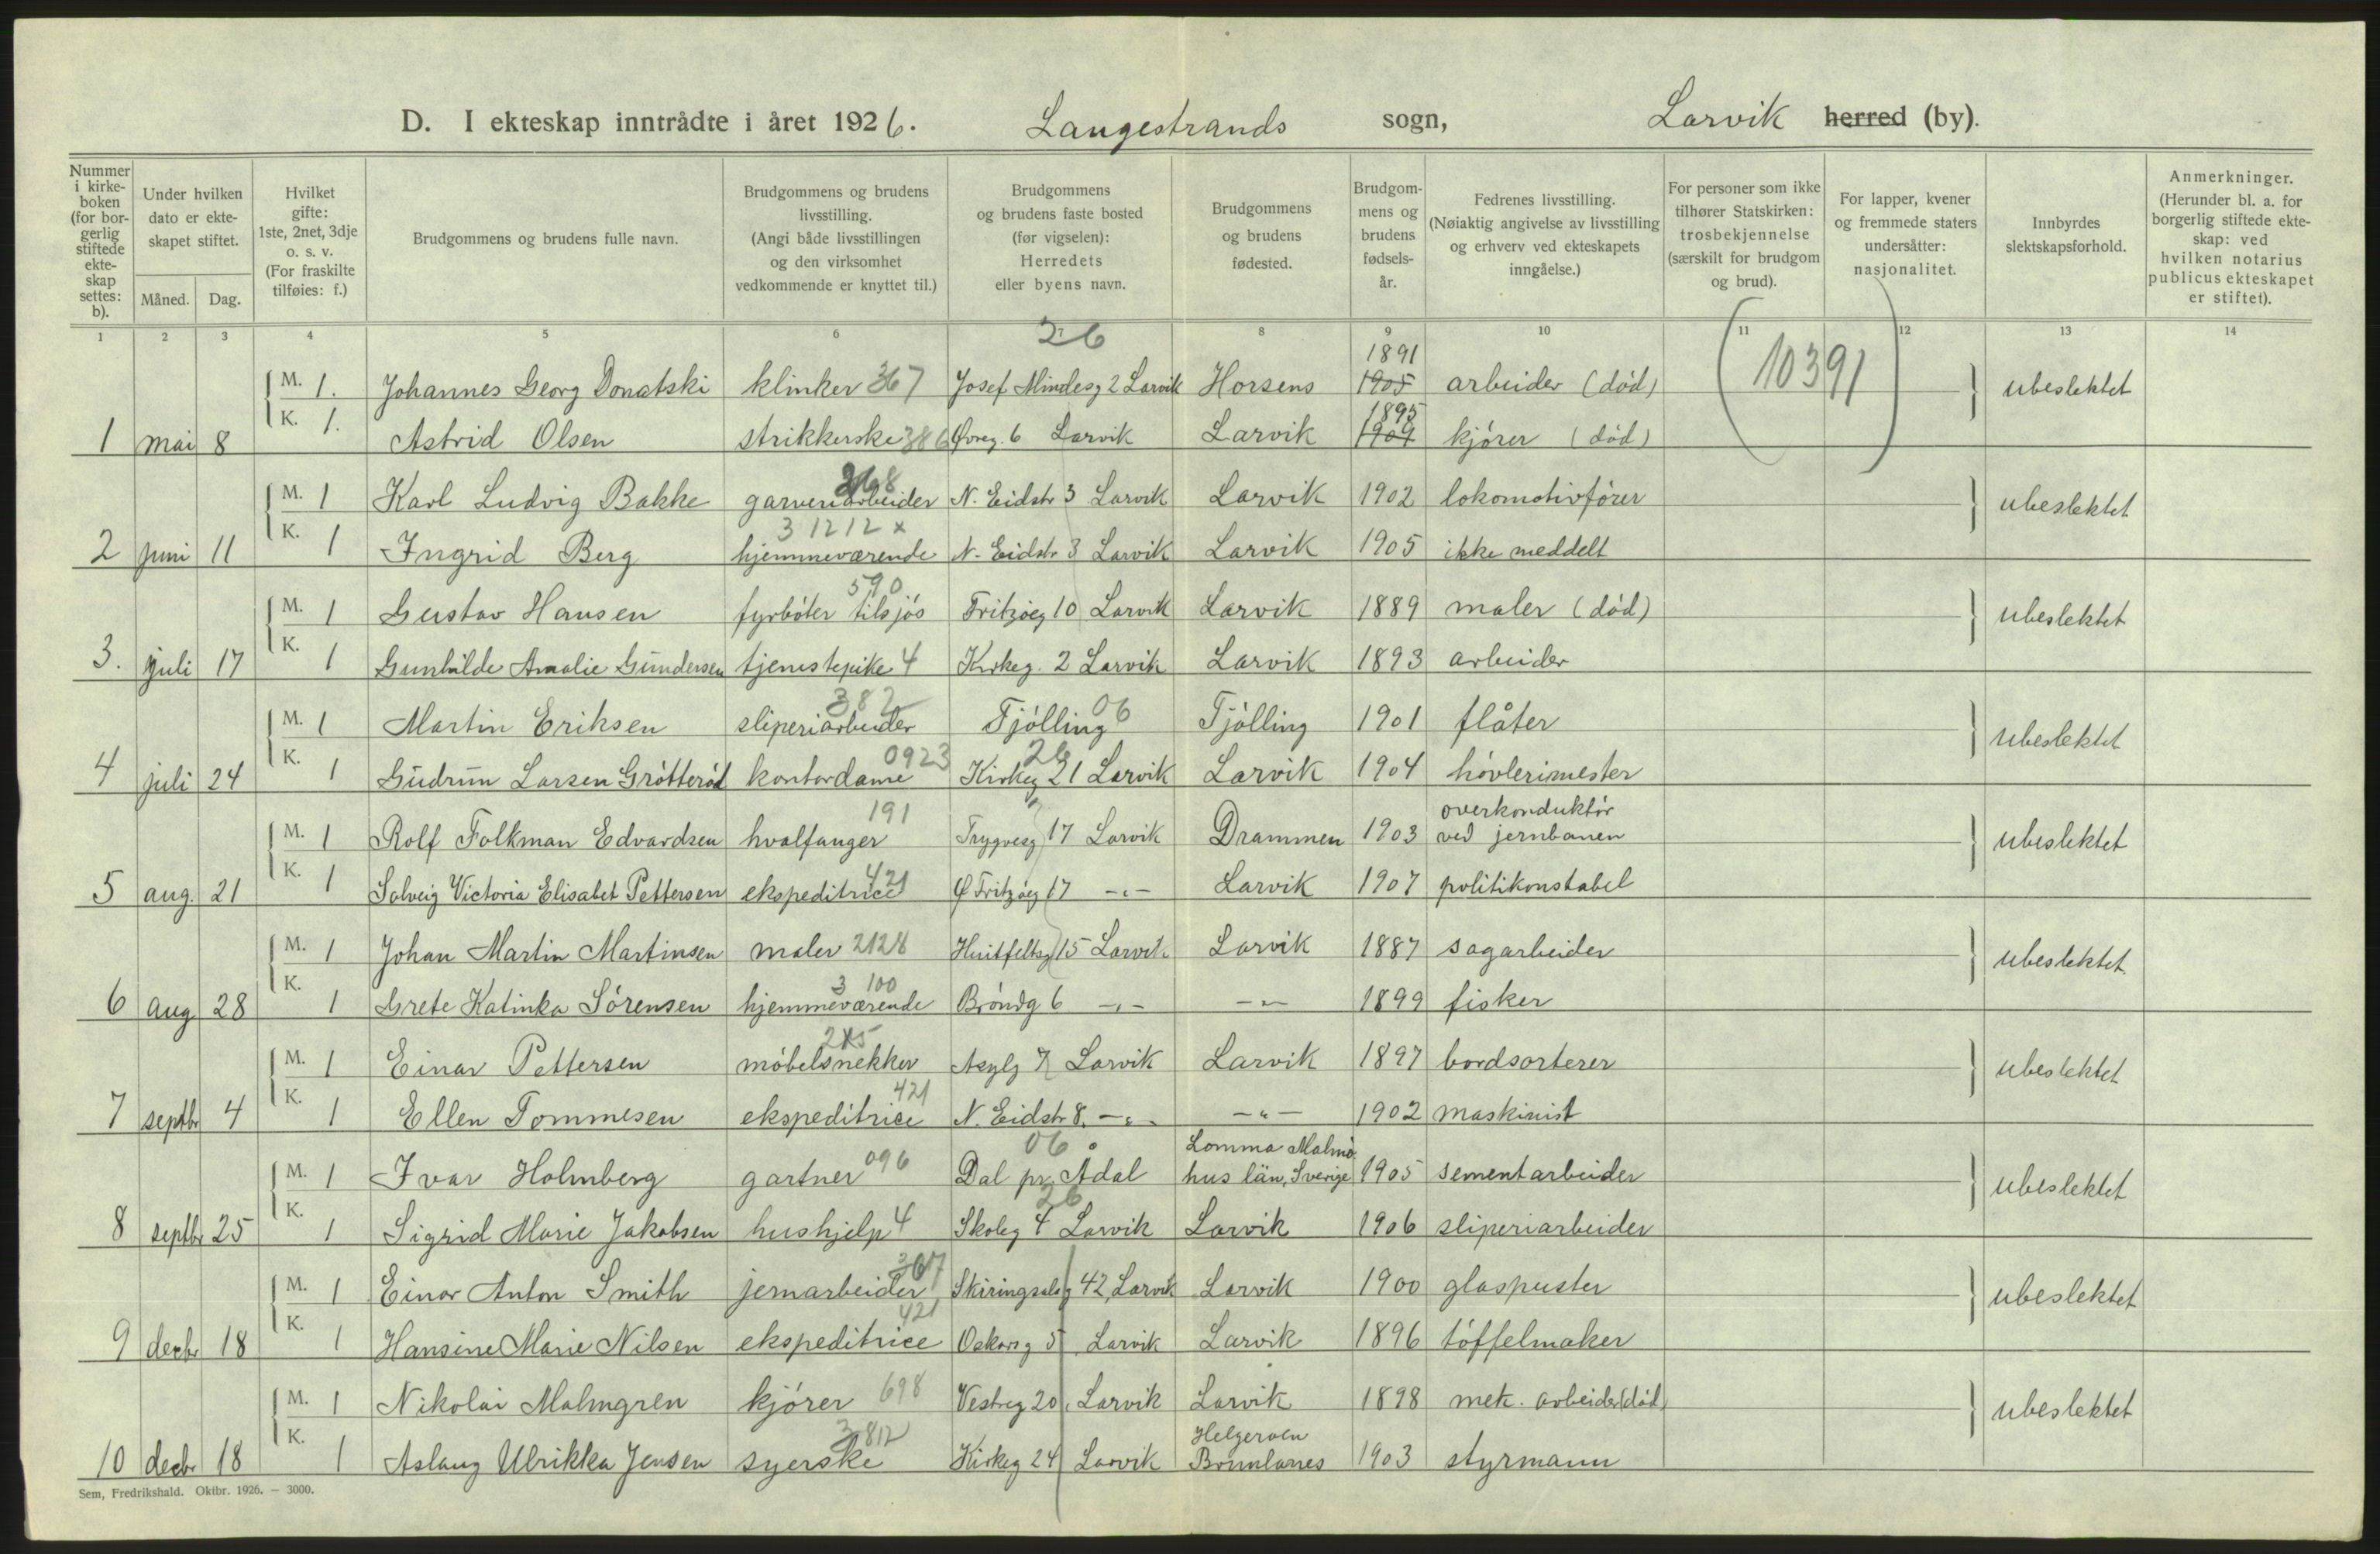 D. I ekteskap inntrådte i året 1926. Langestrands sogn, Larvik herred (by).
Nummer i kirke-boken (for bor-gerlig stiftede ekte-skap settes: b).
Under hvilken dato er ekte-skapet stiftet.
Måned. Dag.
Hvilket gifte: 1ste, 2net, 3dje o. s. v. (For fraskilte tilføies: f.)
Brudgommens og brudens fulle navn.
Brudgommens og brudens livsstilling. (Angi både livsstillingen og den virksomhet vedkommende er knyttet til.)
Brudgommens og brudens faste bosted (før vigselen): Herredets eller byens navn.
Brudgommens og brudens fødested.
Brudgom-mens og brudens fødsels-år.
Fedrenes livsstilling. (Nøiaktig angivelse av livsstilling og erhverv ved ekteskapets inngåelse.)
For personer som ikke tilhører Statskirken: trosbekjennelse (særskilt for brudgom og brud).
For lapper, kvener og fremmede staters undersåtter: nasjonalitet.
Innbyrdes slektskapsforhold.
Anmerkninger. (Herunder bl. a. for borgerlig stiftede ekte-skap: ved hvilken notarius publicus ekteskapet er stiftet).
1 2 3 4 5 6 7 8 9 10 11 12 13 14
26
1891
M. 1. Johannes Georg Donatski klinker 367 Josef Mindesg 2 Larvik Horsens 1905 arbeider (død) (10391) ubeslektet
1895
1 mai 8 K. 1. Astrid Olsen strikkerske 386 Øvreg. 6 Larvik Larvik 1909 kjører (død)
368
M. 1 Karl Ludvig Bakke garveriarbeider N. Eidstr 3 Larvik Larvik 1902 lokomotivfører ubeslektet
3 1212 x
2 juni 11 K. 1 Ingrid Berg hjemmeværende N. Eidstr 3 Larvik Larvik 1905 ikke meddelt
590
M. 1 Gustav Hansen fyrbøter tilsjøs Fritzøeg 10 Larvik Larvik 1889 maler (død) ubeslektet
3. juli 17 K. 1 Gunhilde Amalie Gundersen tjenestepike 4 Kirkeg. 2 Larvik Larvik 1893 arbeider
382 06
M. 1 Martin Eriksen sliperiarbeider Tjølling Tjølling 1901 flåter ubeslektet
0923 26
4 juli 24 K. 1 Gudrun Larsen Grøtterød kontordame Kirkeg 21 Larvik Larvik 1904 høvlerimester
191 overkonduktør
M. 1 Rolf Folkman Edvardsen hvalfanger Trygvesg 17 Larvik Drammen 1903 ved jernbanen ubeslektet
421
5 aug. 21 K. 1 Solveig Victoria Elisabet Pettersen ekspeditrice Ø Fritzøeg 17 -"- Larvik 1907 politikonstabel
M. 1 Johan Martin Martinsen maler 2128 Huitfeltsg 15 Larvik Larvik 1887 sagarbeider ubeslektet
3 100
6 aug 28 K. 1 Grete Katinka Sørensen hjemmeværende Brøndg 6 -"- -"- 1899 fisker
M. 1 Einar Pettersen møbelsnekker Asylg 7 Larvik Larvik 1897 bordsorterer ubeslektet
421
7 septbr 4 K. 1 Ellen Tommesen ekspeditrice N. Eidstr 8. -"- -"- 1902 maskinist
06 Lomma Malmö
M. 1 Ivar Holmberg gartner 096 Dal pr Ådal hus län, Sverige 1905 sementarbeider ubeslektet
26
8 septbr 25 K. 1 Sigrid Marie Jakobsen hushjelp 4 Skoleg 4 Larvik Larvik 1906 sliperiarbeider
367
M. 1 Einar Anton Smith jernarbeider Skiringsalsg 42, Larvik Larvik 1900 glaspuster ubeslektet
421
9 decbr 18 K. 1 Hansine Marie Nilsen ekspeditrice Oskarsg 5 Larvik Larvik 1896 tøffelmaker
M. 1 Nikolai Malmgren kjører 698 Vestreg 20, Larvik Larvik 1898 mek. arbeider (død) ubeslektet
3812 Helgeroen
10 decbr 18 K. 1 Aslaug Ulrikka Jensen syerske Kirkeg 24 Larvik Brunlanes 1903 styrmann
Sem, Fredrikshald. Oktbr. 1926. — 3000.